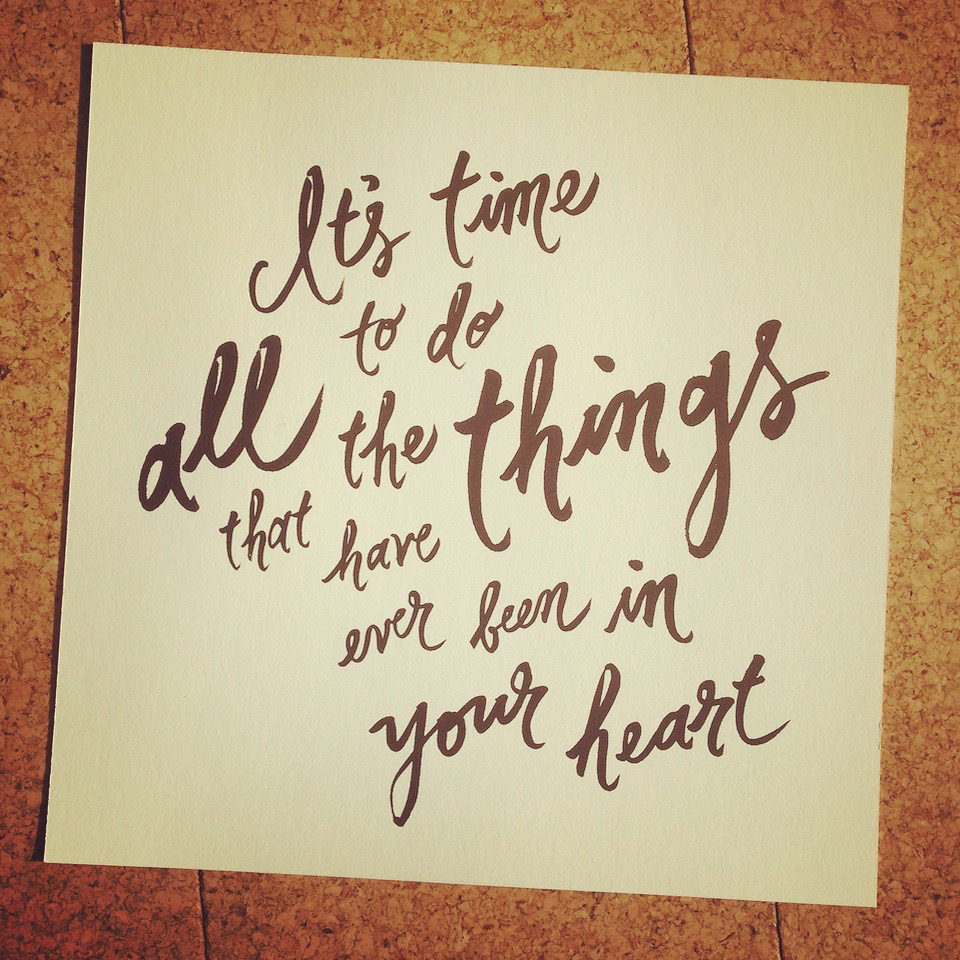 It's time
to do
all the things
that have
ever been in
your heart